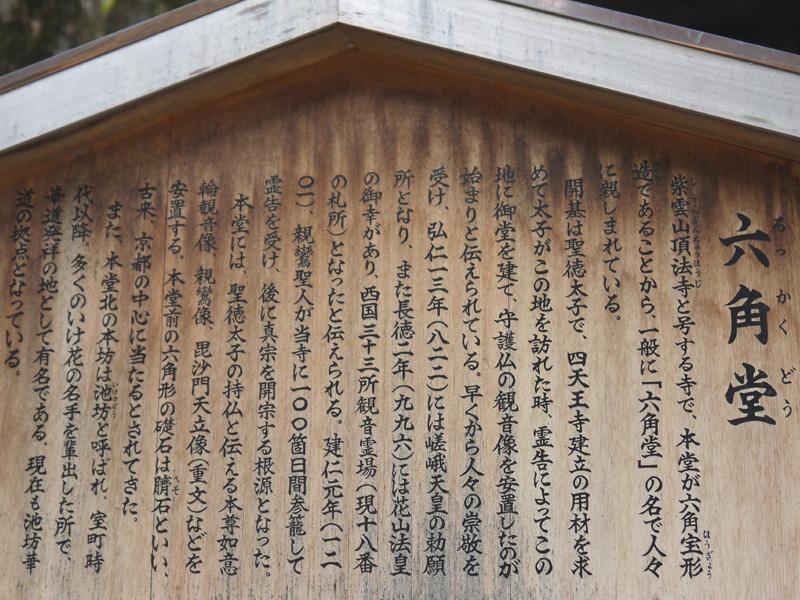 六角堂
ろっかくどう
紫雲山頂法寺と号する寺で、本堂が六角宝形
しうんざんちょうほうじ
ほうぎょう
造であることから、一般に「六角堂」の名で人々
に親しまれている。
開基は聖徳太子で、四天王寺建立の用材を求
めて太子がこの地を訪れた時、霊告によってこの
地に御堂を建て、守護仏の観音像を安置したのが
始まりと伝えられている。早くから人々の崇敬を
受け、弘仁一三年（八二二）には嵯峨天皇の勅願
所となり、また長徳二年（九九六）には花山法皇
の御幸があり、西国三十三所観音霊場（現十八番
の札所）となったと伝えられる。建仁元年（一二
〇一）、親鸞聖人が当寺に一〇〇箇日間参籠して
霊告を受け、後に真宗を開宗する根源となった。
本堂には、聖徳太子の持仏と伝える本尊如意
輪観音像、親鸞像、毘沙門天立像（重文）などを
安置する。本堂前の六角形の礎石は臍石といい、
へそ
古来、京都の中心に当たるとされてきた。
また、本堂北の本坊は池坊と呼ばれ、室町時
いけのぼう
代以降、多くのいけ花の名手を輩出した所で、
華道発祥の地として有名である。現在も池坊華
道の拠点となっている。